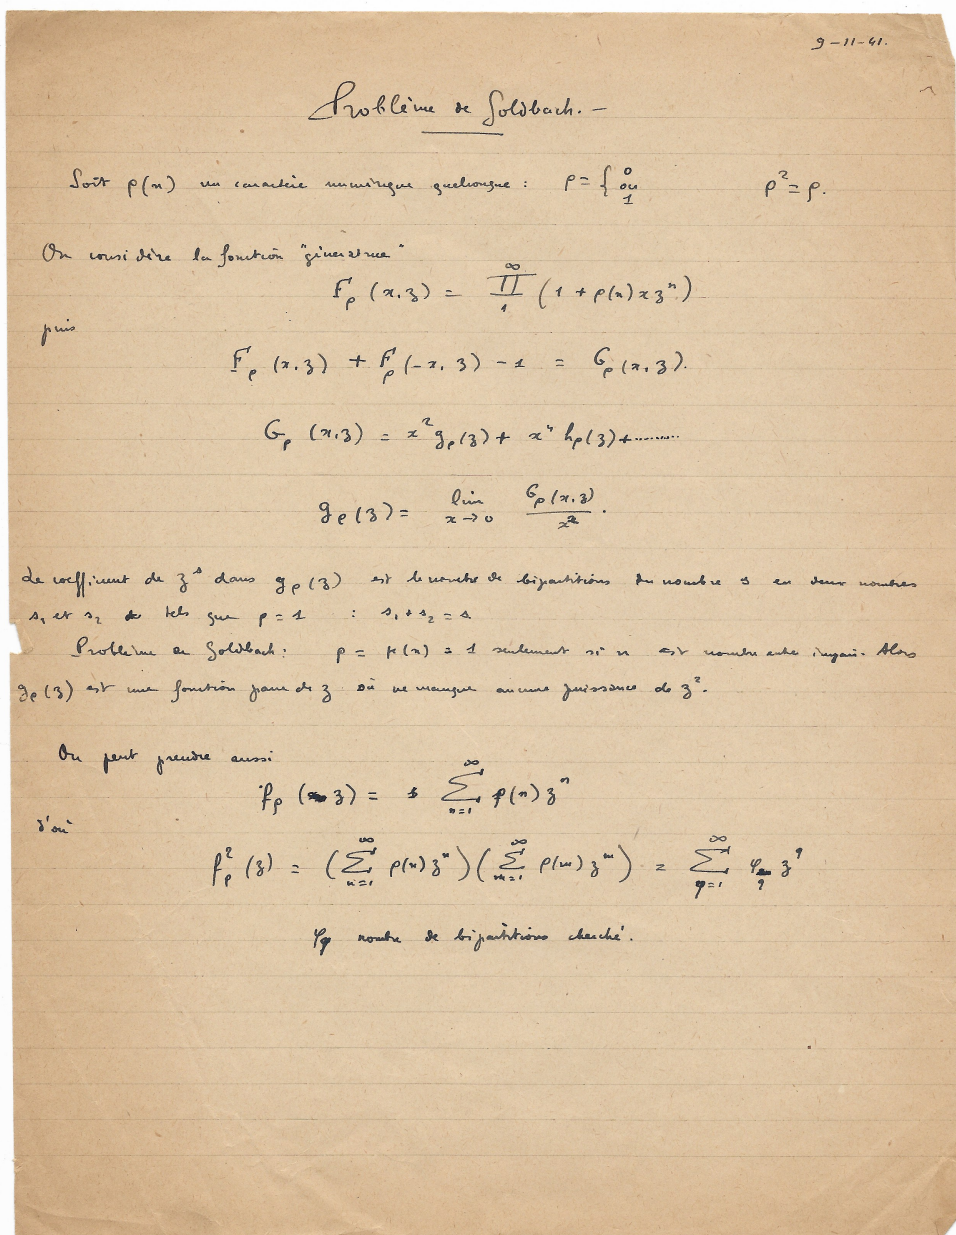 9-11-41.
Problème de Goldbach. —
Soit ρ(n) un caractère numérique quelconque : ρ = { 0 ou 1 ρ² = ρ.
On considère la fonction "génératrice"
F_ρ (x, z) = ∏_1^∞ (1 + ρ(n) x z^n)
puis
F_ρ (x, z) + F_ρ (-x, z) - 1 = G_ρ (x, z).
G_ρ (x, z) = x² g_ρ (z) + x⁴ h_ρ (z) + ........
g_ρ (z) = lim_{x→0} G_ρ (x, z) / x² .
Le coefficient de z^s dans g_ρ (z) est le nombre de bipartitions du nombre s en deux nombres
s₁ et s₂ tels que ρ = 1 : s₁ + s₂ = s.
Problème de Goldbach : ρ = (n) = 1 seulement si n est nombre impair. Alors
g_ρ (z) est une fonction paire de z où ne manque aucune puissance de z².
On peut prendre aussi
f_ρ (z) = ∑_{n=1}^∞ ρ(n) z^n
d'où
f_ρ² (z) = (∑_{n=1}^∞ ρ(n) z^n) (∑_{m=1}^∞ ρ(m) z^m) = ∑_{q=1}^∞ φ_q z^q
φ_q nombre de bipartitions cherché.